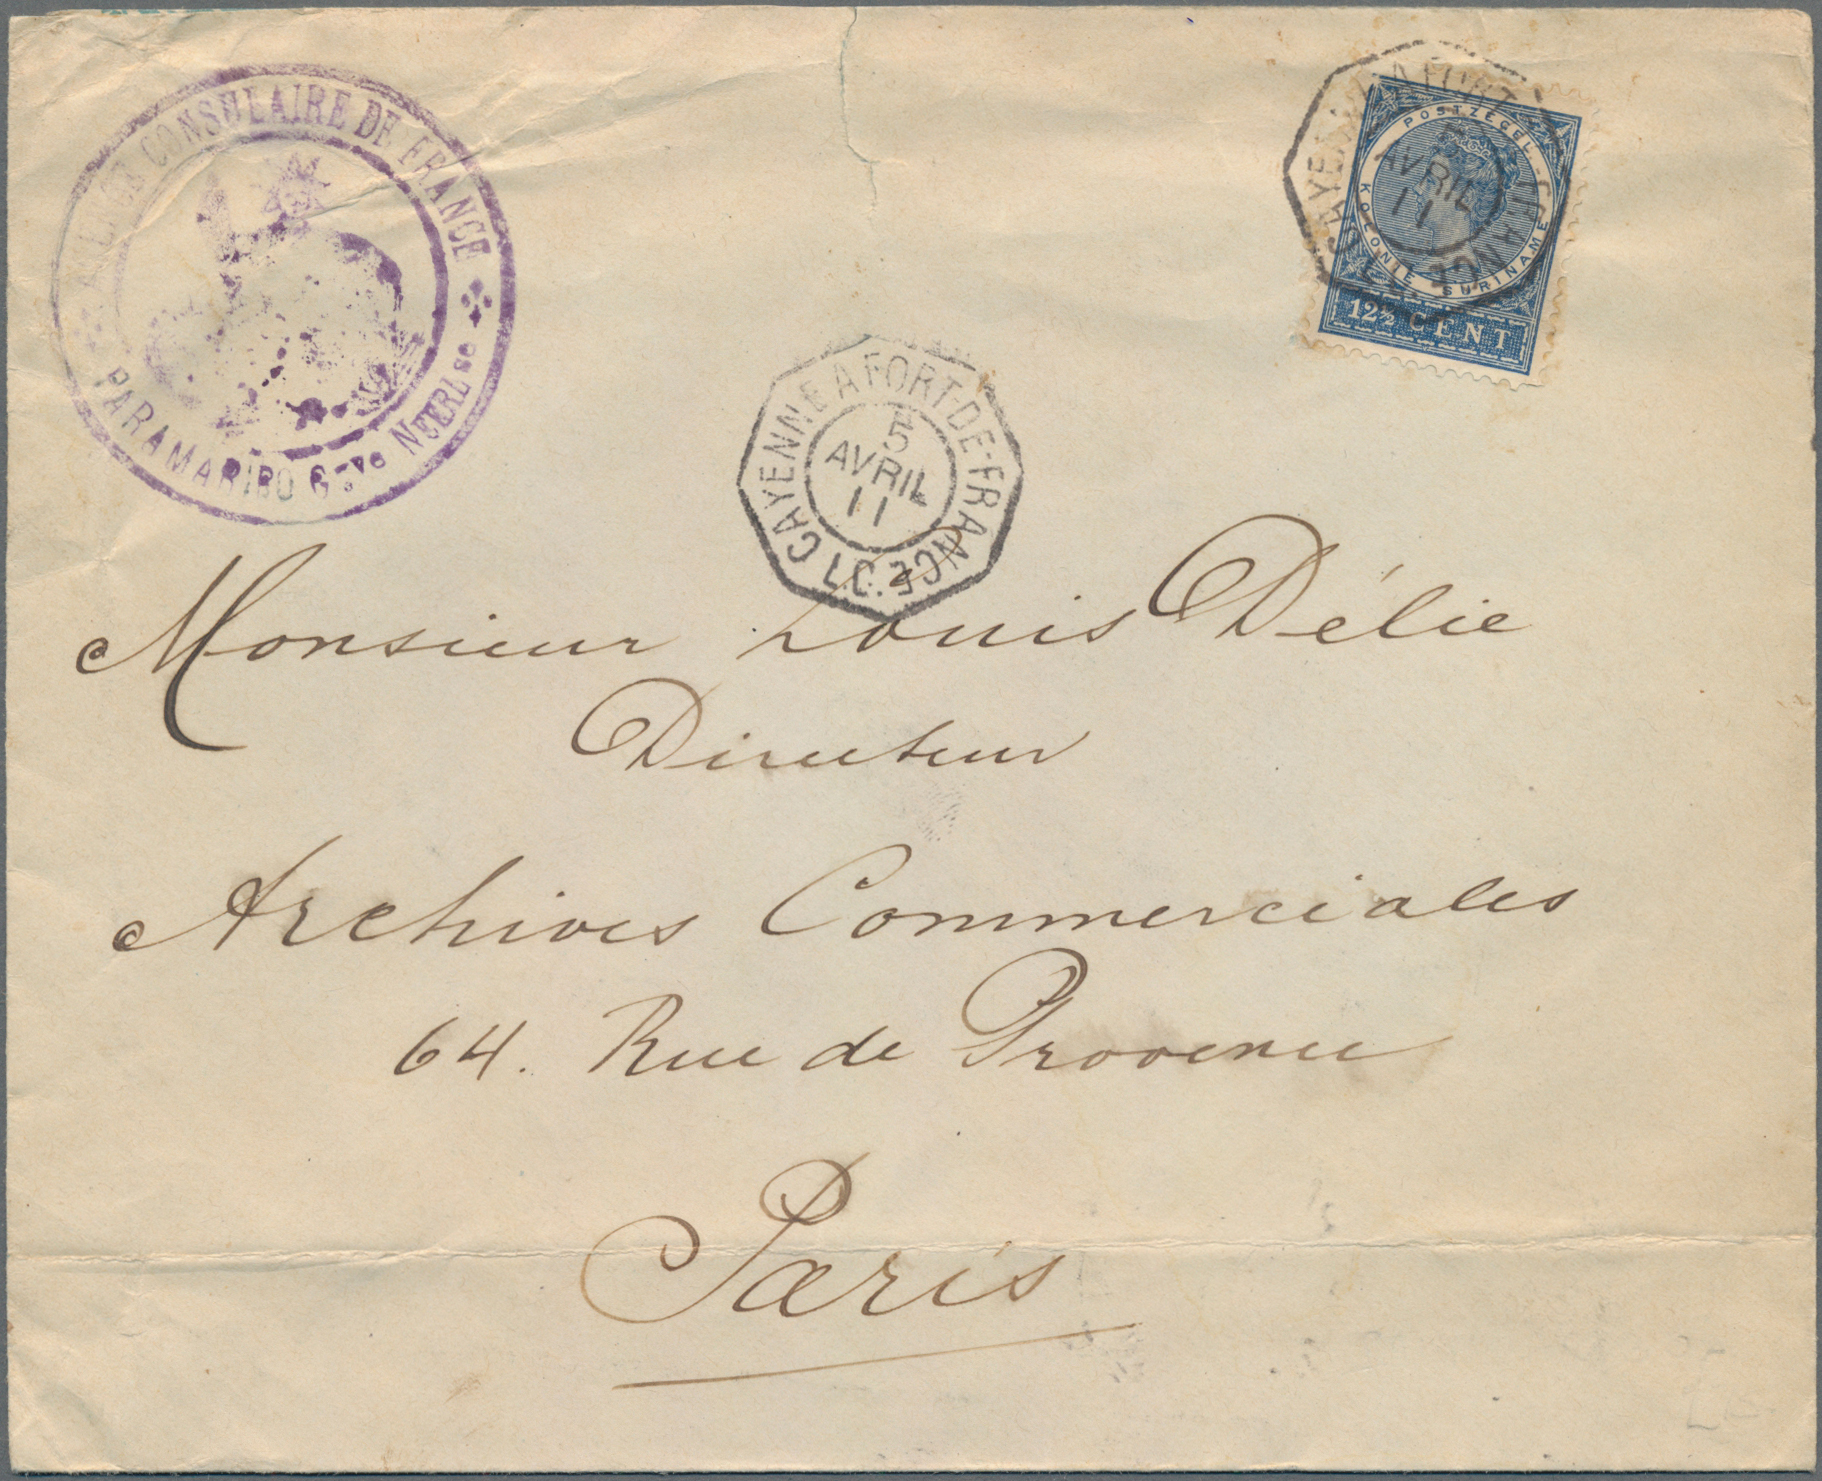 AGENCE CONSULAIRE DE FRANCE
PARAMARIBO Gne NEERLse
CAYENNE A FORT-DE-FRANCE
5
AVRIL
11
L.C.
POSTZEGEL
KOLONIE SURINAME
12½ CENT
CAYENNE A FORT-DE-FRANCE L.C.
5
AVRIL
11
Monsieur Louis Délie
Directeur
Archives Commerciales
64. Rue de Provence
Paris